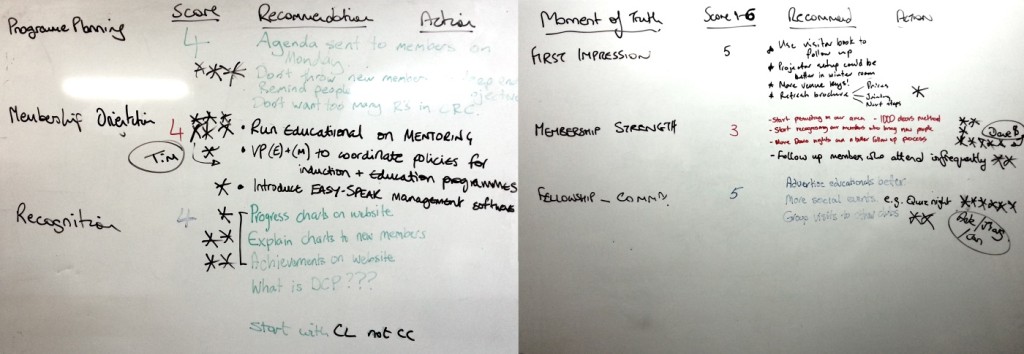 Score Recommendation Action
Programme Planning
4
Agenda sent to members on
Monday
Don't throw new member
Remind people
Don't want too many R's in CRC.
Membership Orientation
4
Tim
• Run Educational on MENTORING
• VP(E)+(M) to coordinate policies for
induction + Education programmes
• Introduce EASY-SPEAK management software
Recognition
4
Progress charts on website
Explain charts to new members
Achievements on website
What is DCP???
Start with CL not CC
Moment of Truth Score 1-6 Recommend Action
FIRST IMPRESSION
5
* Use visitor book to
follow up
* Projector setup could be
better in winter room
* More venue keys!
* Refresh brochure
Prices
Joining
Next steps
MEMBERSHIP STRENGTH
3
- Start promoting in our area - 1000 doors method
- Start recognising our members who bring new people
- More Demo nights and a better follow up process
- Follow up members who attend infrequently
Dave B
FELLOWSHIP
5
Advertise educationals better
More social events e.g. Quiz night
Group visits to other clubs